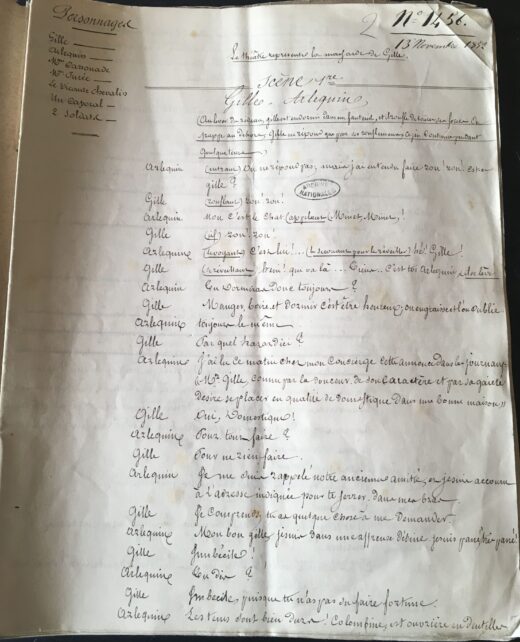 Personnages
Gille
Arlequin
Mr Cassonade
Mme
Le Vicomte Chevalis
Un Caporal
2 Soldats
2
No 1456.
13 Novembre 1852
Le théâtre représente la mansarde de Gille.
Scène 1re
Gilles - Arlequin
(Au lever du rideau, gille est endormi dans un fauteuil, et ronfle de toutes ses forces. On
frappe au dehors. Gille ne répond que par ses ronflements. Ce jeu continue pendant
quelque temps)
Arlequin (entrant) On ne répond pas, mais j'ai entendu faire zon! zon! Est-ce
gille?
ARCHIVES NATIONALES
Gille (ronflant) zon! zon!
Arlequin Non c'est le chat (appelant) Minet, Minet!
Gille (id) zon! zon!
Arlequin (le voyant) C'est lui!... (le secouant pour le réveiller) hé! Gille!
Gille (s'éveillant) hein! qui va là... Tiens.. C'est toi Arlequin.
Arlequin Tu dormiras donc toujours?
Gille Manger, boire et dormir c'est être heureux; on engraisse et l'on oublie
Arlequin toujours le même
Gille Par quel hazard ici?
Arlequin J'ai lu ce matin chez mon Concierge cette annonce dans les journaux
« Mr Gille, connu par la douceur de son Caractère et par sa gaieté
désire se placer en qualité de domestique dans une bonne maison »
Gille Oui, Domestique!
Arlequin Pour tout faire?
Gille Pour ne rien faire.
Arlequin Je me suis rappelé notre ancienne amitié, et je suis accouru
à l'adresse indiquée pour te serrer dans mes bras.
Gille Je Comprends, tu as quelque chose à me Demander
Arlequin Mon bon gille, je suis dans une affreuse débine, je suis pané
Gille Imbécile!
Arlequin Tu dis?
Gille Imbécile, puisque tu n'as pas su faire fortune.
Arlequin Les tems sont bien durs! Colombine, est ouvrière en dentelles